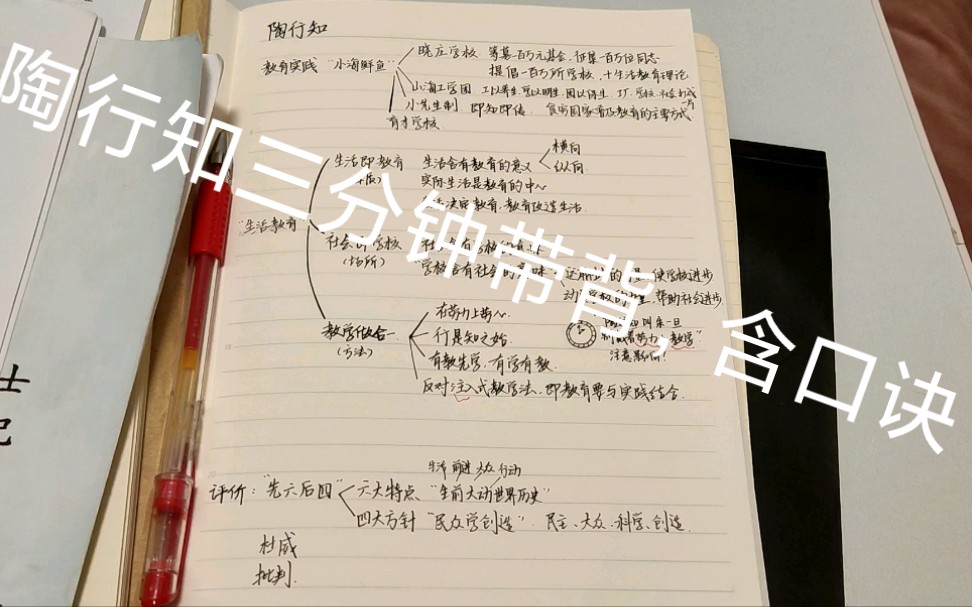 陶行知
教育实践 "小海鲜鱼"
晓庄学校 筹募一百万元基金,征集一百万位同志
提倡一百万所学校,十生活教育理论
山海工学团 工以养生,学以明生,团以保生,工厂、学校、社会打成一片
小先生制 即知即传
育才学校
"生活教育"
生活即教育 生活含有教育的意义
横向
纵向
实际生活是教育的中心
生活决定教育,教育改造生活
社会即学校
(场所)
学校含有社会的意味
教学做合一
(方法)
在劳力上劳心
行是知之始
有教先学,有学有教
反对注入式教学法,即教育要与实践结合.
注意影响!
生活 前进 大众 行动
评价: "先六后四" 六大特点 "生前大动世界历史"
四大方针 "民众学创造" 民主、大众、科学、创造
杜威
批判.
陶行知三分钟带背,含口诀